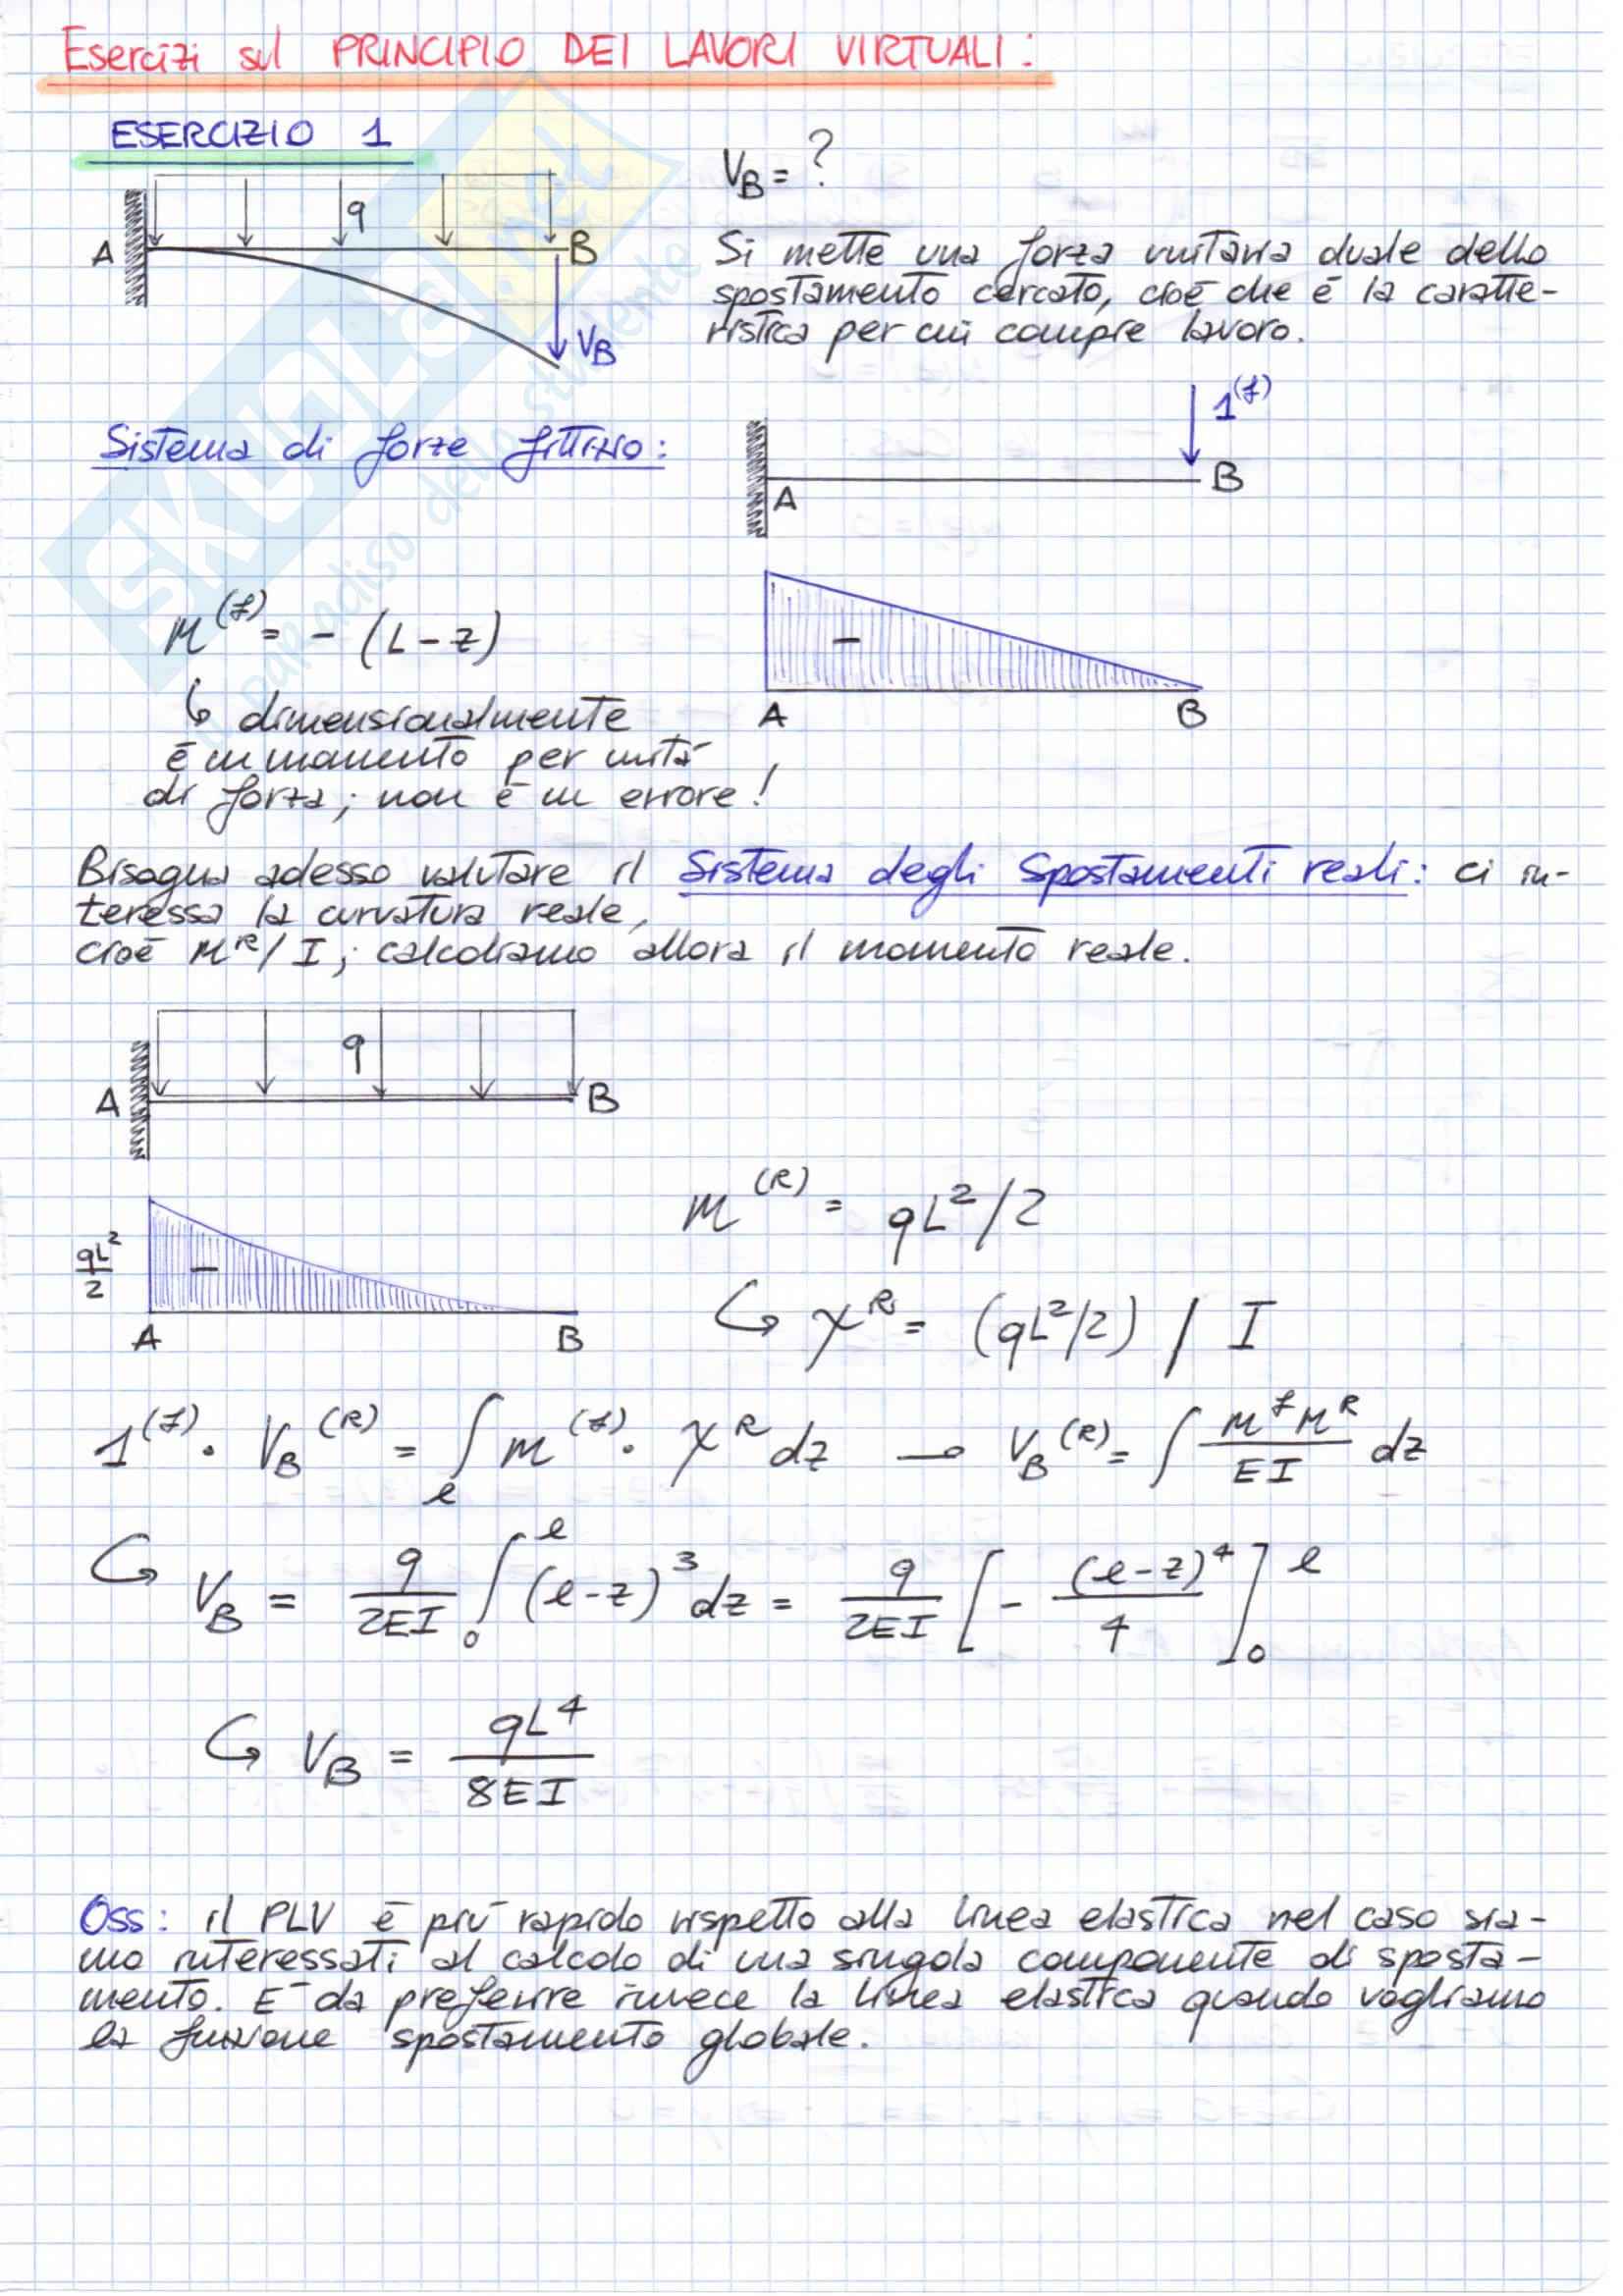 Esercizi sul PRINCIPIO DEI LAVORI VIRTUALI:
ESERCIZIO 1
q
A
B
VB
VB = ?
Si mette una forza unitaria duale dello
spostamento cercato, cioè che è la caratte-
ristica per cui compie lavoro.
Sistema di forze fittizio:
1^(f)
A
B
M^(f) = - (L-z)
↳ dimensionalmente
è un momento per unità
di forza; non è un errore!
-
A
B
Bisogna adesso valutare il Sistema degli Spostamenti reali: ci in-
teressa la curvatura reale,
cioè M^R/I; calcoliamo allora il momento reale.
q
A
B
qL²/2
-
A
B
M^(R) = qL²/2
↳ χ^R = (qL²/2) / I
1^(f) · VB^(R) = ∫_l M^(f) · χ^R dz → VB^(R) = ∫ M^f M^R / EI dz
↳ VB = q/2EI ∫_0^l (l-z)³ dz = q/2EI [ - (l-z)⁴/4 ]_0^l
↳ VB = qL⁴/8EI
Oss: il PLV è più rapido rispetto alla linea elastica nel caso sia-
mo interessati al calcolo di una singola componente di sposta-
mento. E' da preferire invece la linea elastica quando vogliamo
la funzione spostamento globale.
SKUOLA.net
il paradiso dello studente